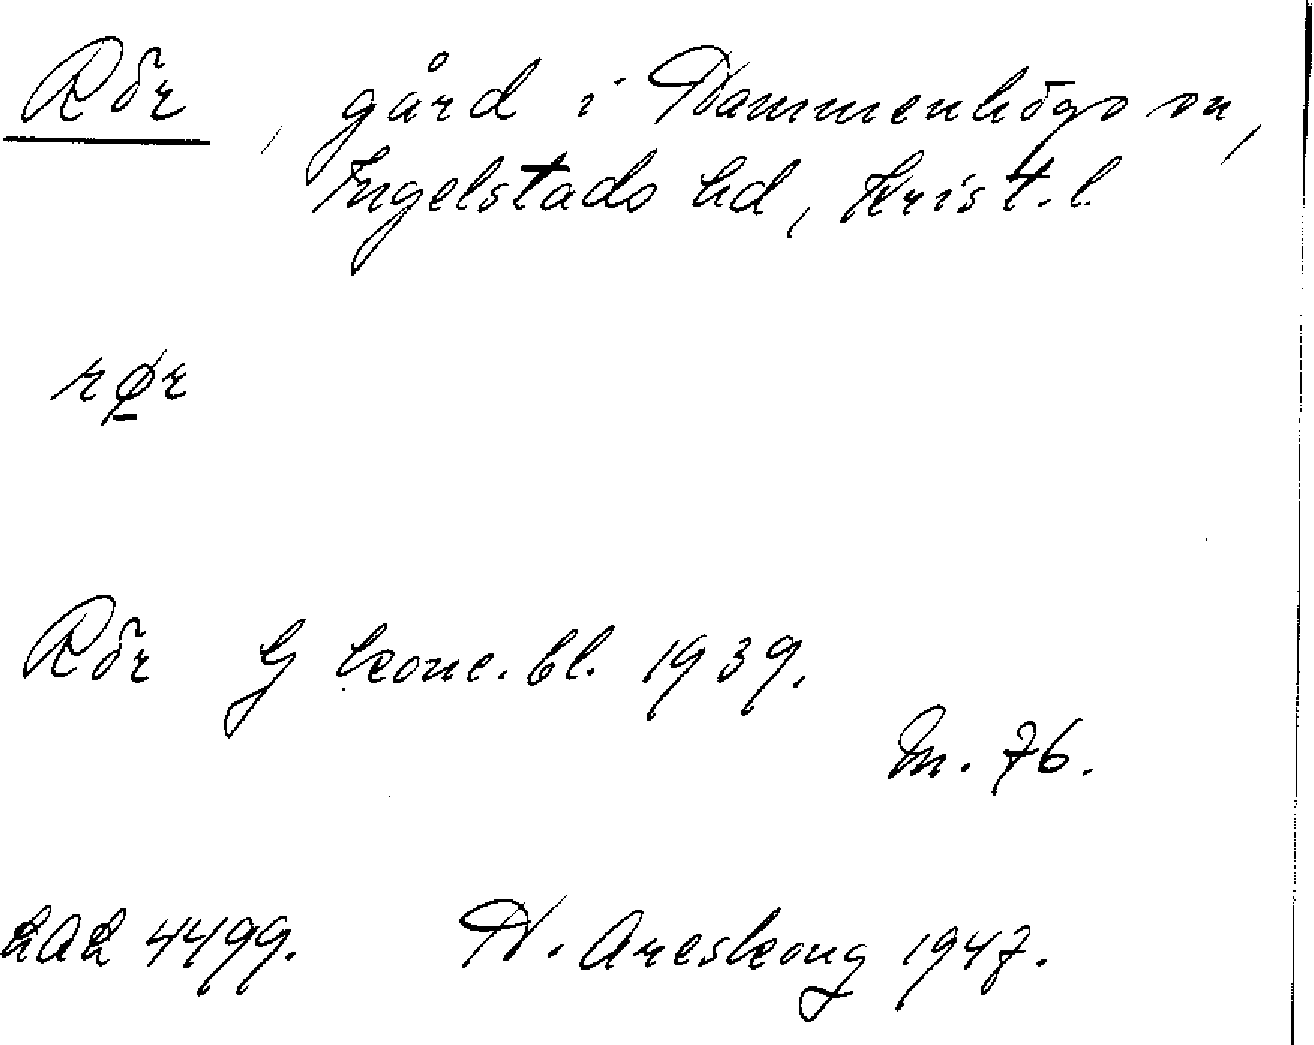 Rör, gård i Hammenhögs sn,
Ingelstads hd, Krist. l.
rø̠r
Rör G konc. bl. 1939.
m. 76.
LAL 4499. N. Areskoug 1947.